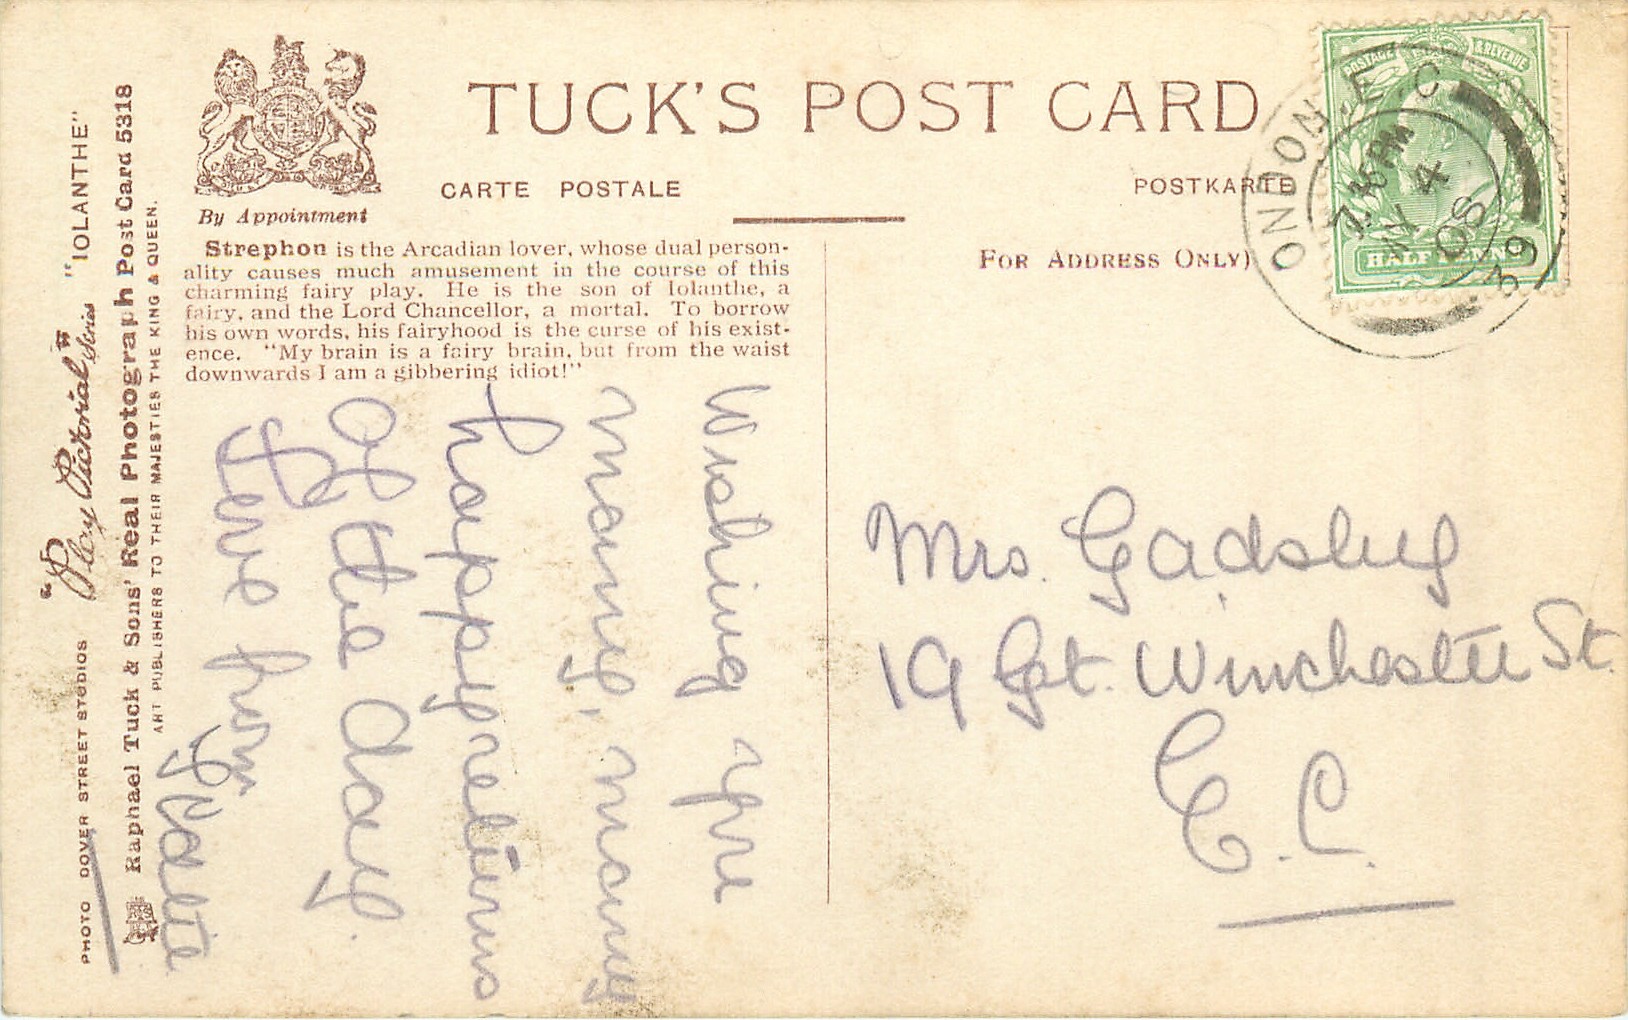 TUCK'S POST CARD
CARTE POSTALE
POSTKARTE
By Appointment
FOR ADDRESS ONLY)
Strephon is the Arcadian lover, whose dual person-
ality causes much amusement in the course of this
charming fairy play. He is the son of Iolanthe, a
fairy, and the Lord Chancellor, a mortal. To borrow
his own words, his fairyhood is the curse of his exist-
ence. "My brain is a fairy brain, but from the waist
downwards I am a gibbering idiot!"
Wishing you
many, many
happy returns
of the day.
Love from
"Play Pictorial" Series "IOLANTHE"
PHOTO DOVER STREET STUDIOS
Raphael Tuck & Sons' Real Photograph Post Card 5318
ART PUBLISHERS TO THEIR MAJESTIES THE KING & QUEEN.
POSTAGE & REVENUE
HALF PENNY
LONDON E.C
MY 4
08
39
Mrs. Gadsby
19 Gt. Winchester St.
E.C.